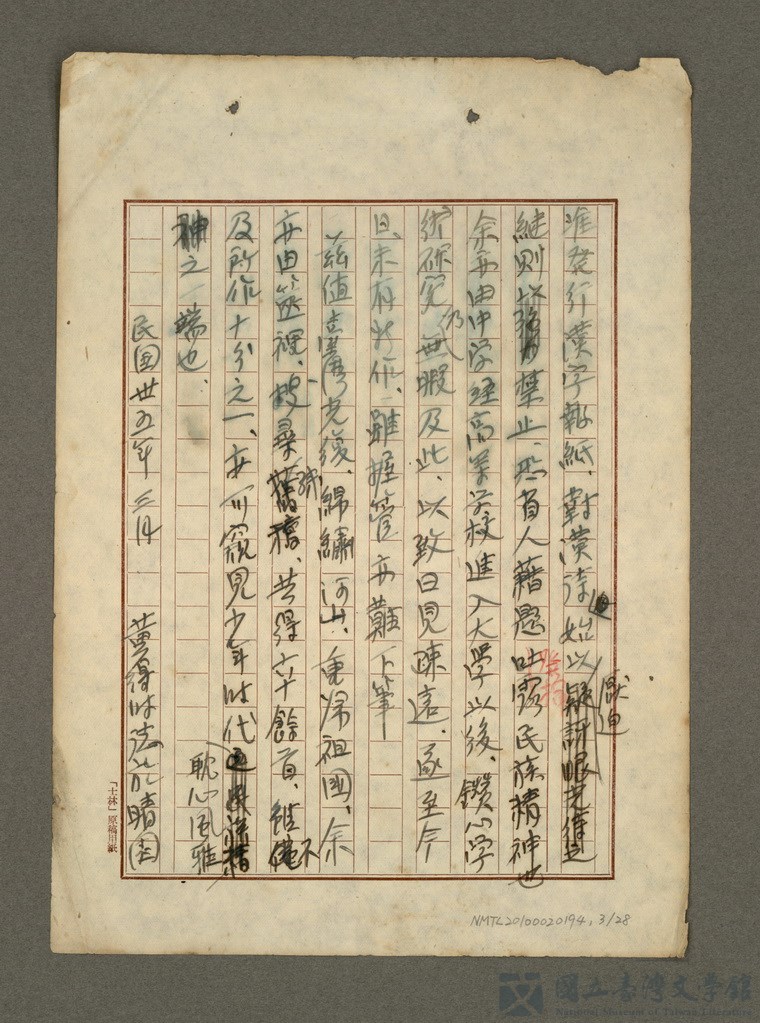 准發行漢字報紙、對漢詩始以壓迫
継則以強力禁止、恐省人藉題吐露民族精神也
余亦由中学経高等学校進入大学以後、鑽心学
術研究、仍無暇及此、以致日見疎遠、遂至今
日、未有新作、雖握管亦難下筆
茲值臺湾光復、綿繡河山、重帰祖國、余
亦由篋裡、搜尋舊稿、共得六十餘首、雖僅不
及所作十分之一、亦可窺見少年时代耽心風雅
之一端也、
民国卅五年三月 黄得时誌於晴園
「士林」原稿用紙
NMTL20100020194, 3/28
國立臺灣文學館
National Museum of Taiwan Literature